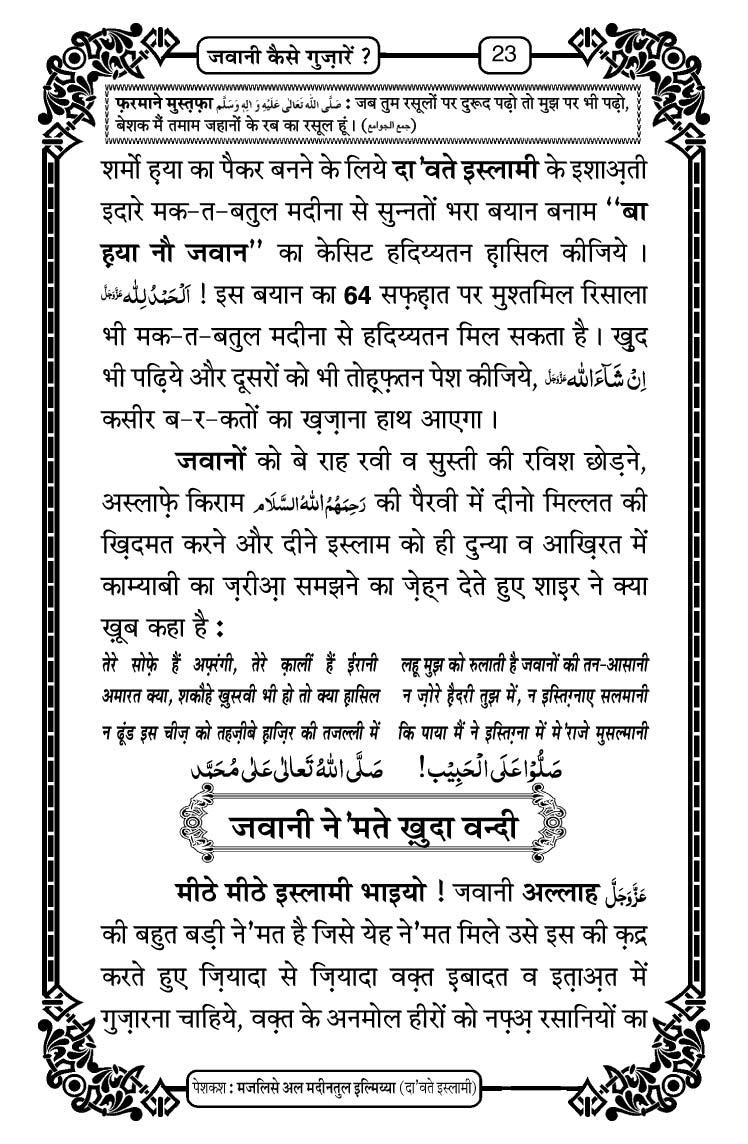 जवानी कैसे गुज़ारें ?
23
फ़रमाने मुस्त़फ़ा صَلَّى اللهُ تَعَالٰى عَلَيْهِ وَاٰلِهٖ وَسَلَّم : जब तुम रसूलों पर दुरूद पढ़ो तो मुझ पर भी पढ़ो,
बेशक मैं तमाम जहानों के रब का रसूल हूं । (جمع الجوامع)
शर्मो ह़या का पैकर बनने के लिये दा'वते इस्लामी के इशाअ़ती
इदारे मक-त-बतुल मदीना से सुन्नतों भरा बयान बनाम ‘‘बा
ह़या नौ जवान’’ का केसिट हदिय्यतन ह़ासिल कीजिये ।
اَلْحَمْدُ لِلّٰه عَزَّوَجَلَّ ! इस बयान का 64 सफ़ह़ात पर मुश्तमिल रिसाला
भी मक-त-बतुल मदीना से हदिय्यतन मिल सकता है । ख़ुद
भी पढ़िये और दूसरों को भी तोह़्फ़तन पेश कीजिये, اِنْ شَآءَ اللّٰه عَزَّوَجَلَّ
कसीर ब-र-कतों का ख़ज़ाना हाथ आएगा ।
जवानों को बे राह रवी व सुस्ती की रविश छोड़ने,
अस्लाफ़े किराम رَحِمَهُمُ اللهُ السَّلَام की पैरवी में दीनो मिल्लत की
ख़िदमत करने और दीने इस्लाम को ही दुन्या व आख़िरत में
काम्याबी का ज़रीआ़ समझने का ज़ेह्न देते हुए शाइ़र ने क्या
ख़ूब कहा है :
तेरे सोफ़े हैं अफ़्रंगी, तेरे क़ालीं हैं ईरानी लहू मुझ को रुलाती है जवानों की तन-आसानी
अमारत क्या, शकौहे ख़ुस्रवी भी हो तो क्या ह़ासिल न ज़ोरे ह़ैदरी तुझ में, न इस्तिग़्नाए सलमानी
न ढूंड इस चीज़ को तहज़ीबे ह़ाज़िर की तजल्ली में कि पाया मैं ने इस्तिग़्ना में मे'राजे मुसल्मानी
صَلُّوْا عَلَى الْحَبِيْب! صَلَّى اللهُ تَعَالٰى عَلٰى مُحَمَّد
जवानी ने'मते ख़ुदा वन्दी
मीठे मीठे इस्लामी भाइयो ! जवानी अल्लाह عَزَّوَجَلَّ
की बहुत बड़ी ने'मत है जिसे येह ने'मत मिले उसे इस की क़द्र
करते हुए ज़ियादा से ज़ियादा वक़्त इबादत व इत़ाअ़त में
गुज़ारना चाहिये, वक़्त के अनमोल हीरों को नफ़्अ़ रसानियों का
पेशकश : मजलिसे अल मदीनतुल इल्मिय्या (दा'वते इस्लामी)